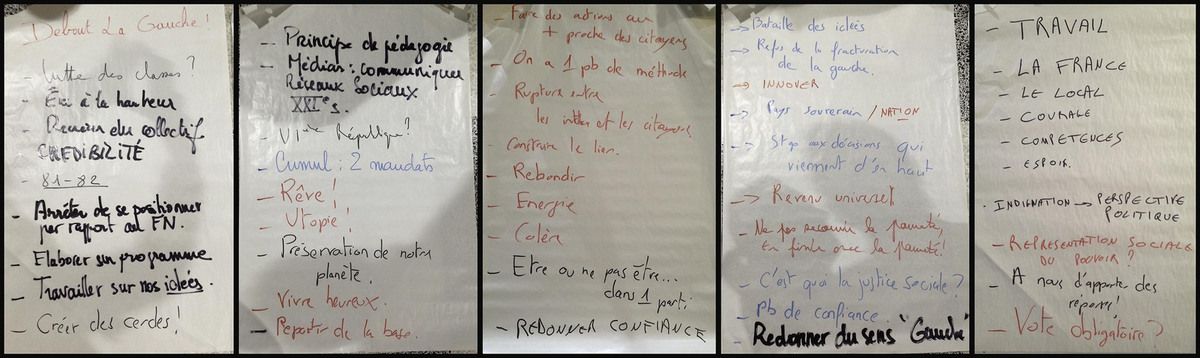 Debout La Gauche !
- Lutte des classes ?
- Être à la hauteur
- Demain du collectif.
CREDIBILITE
- 81-82
- Arrêter de se positionner
par rapport au FN.
- Elaborer un programme
- Travailler sur nos idées.
- Créer des cercles !
- Principe de pédagogie
- Médias : communiquer
Réseaux Sociaux
XXIe s.
- VIème République ?
- Cumul : 2 mandats
- Rêve !
- Utopie !
- Préservation de notre
planète.
- Vivre heureux.
- Repartir de la base.
- Faire des actions au
+ proche des citoyens
- On a 1 pb de méthode
- Rupture entre
les et les citoyens.
- Construire le lien.
- Rebondir
- Energie
- Colère
- Etre ou ne pas être...
dans 1 parti
- REDONNER CONFIANCE
-> Bataille des idées
-> Refus de la fracturation
de la gauche.
-> INNOVER
-> Pays souverain / NATION
-> Stop aux décisions qui
viennent d'en haut
-> Revenu universel
- Ne pas secourir la pauvreté,
En finir avec la pauvreté !
- C'est quoi la justice sociale ?
- Pb de confiance.
- Redonner du sens "Gauche"
- TRAVAIL
- LA FRANCE
- LE LOCAL
- COURAGE
- COMPETENCES
- ESPOIR.
. INDIGNATION -> PERSPECTIVE
POLITIQUE
- REPRESENTATION SOCIALE
DU POUVOIR ?
- A nous d'apporter des
réponses !
- Vote obligatoire ?